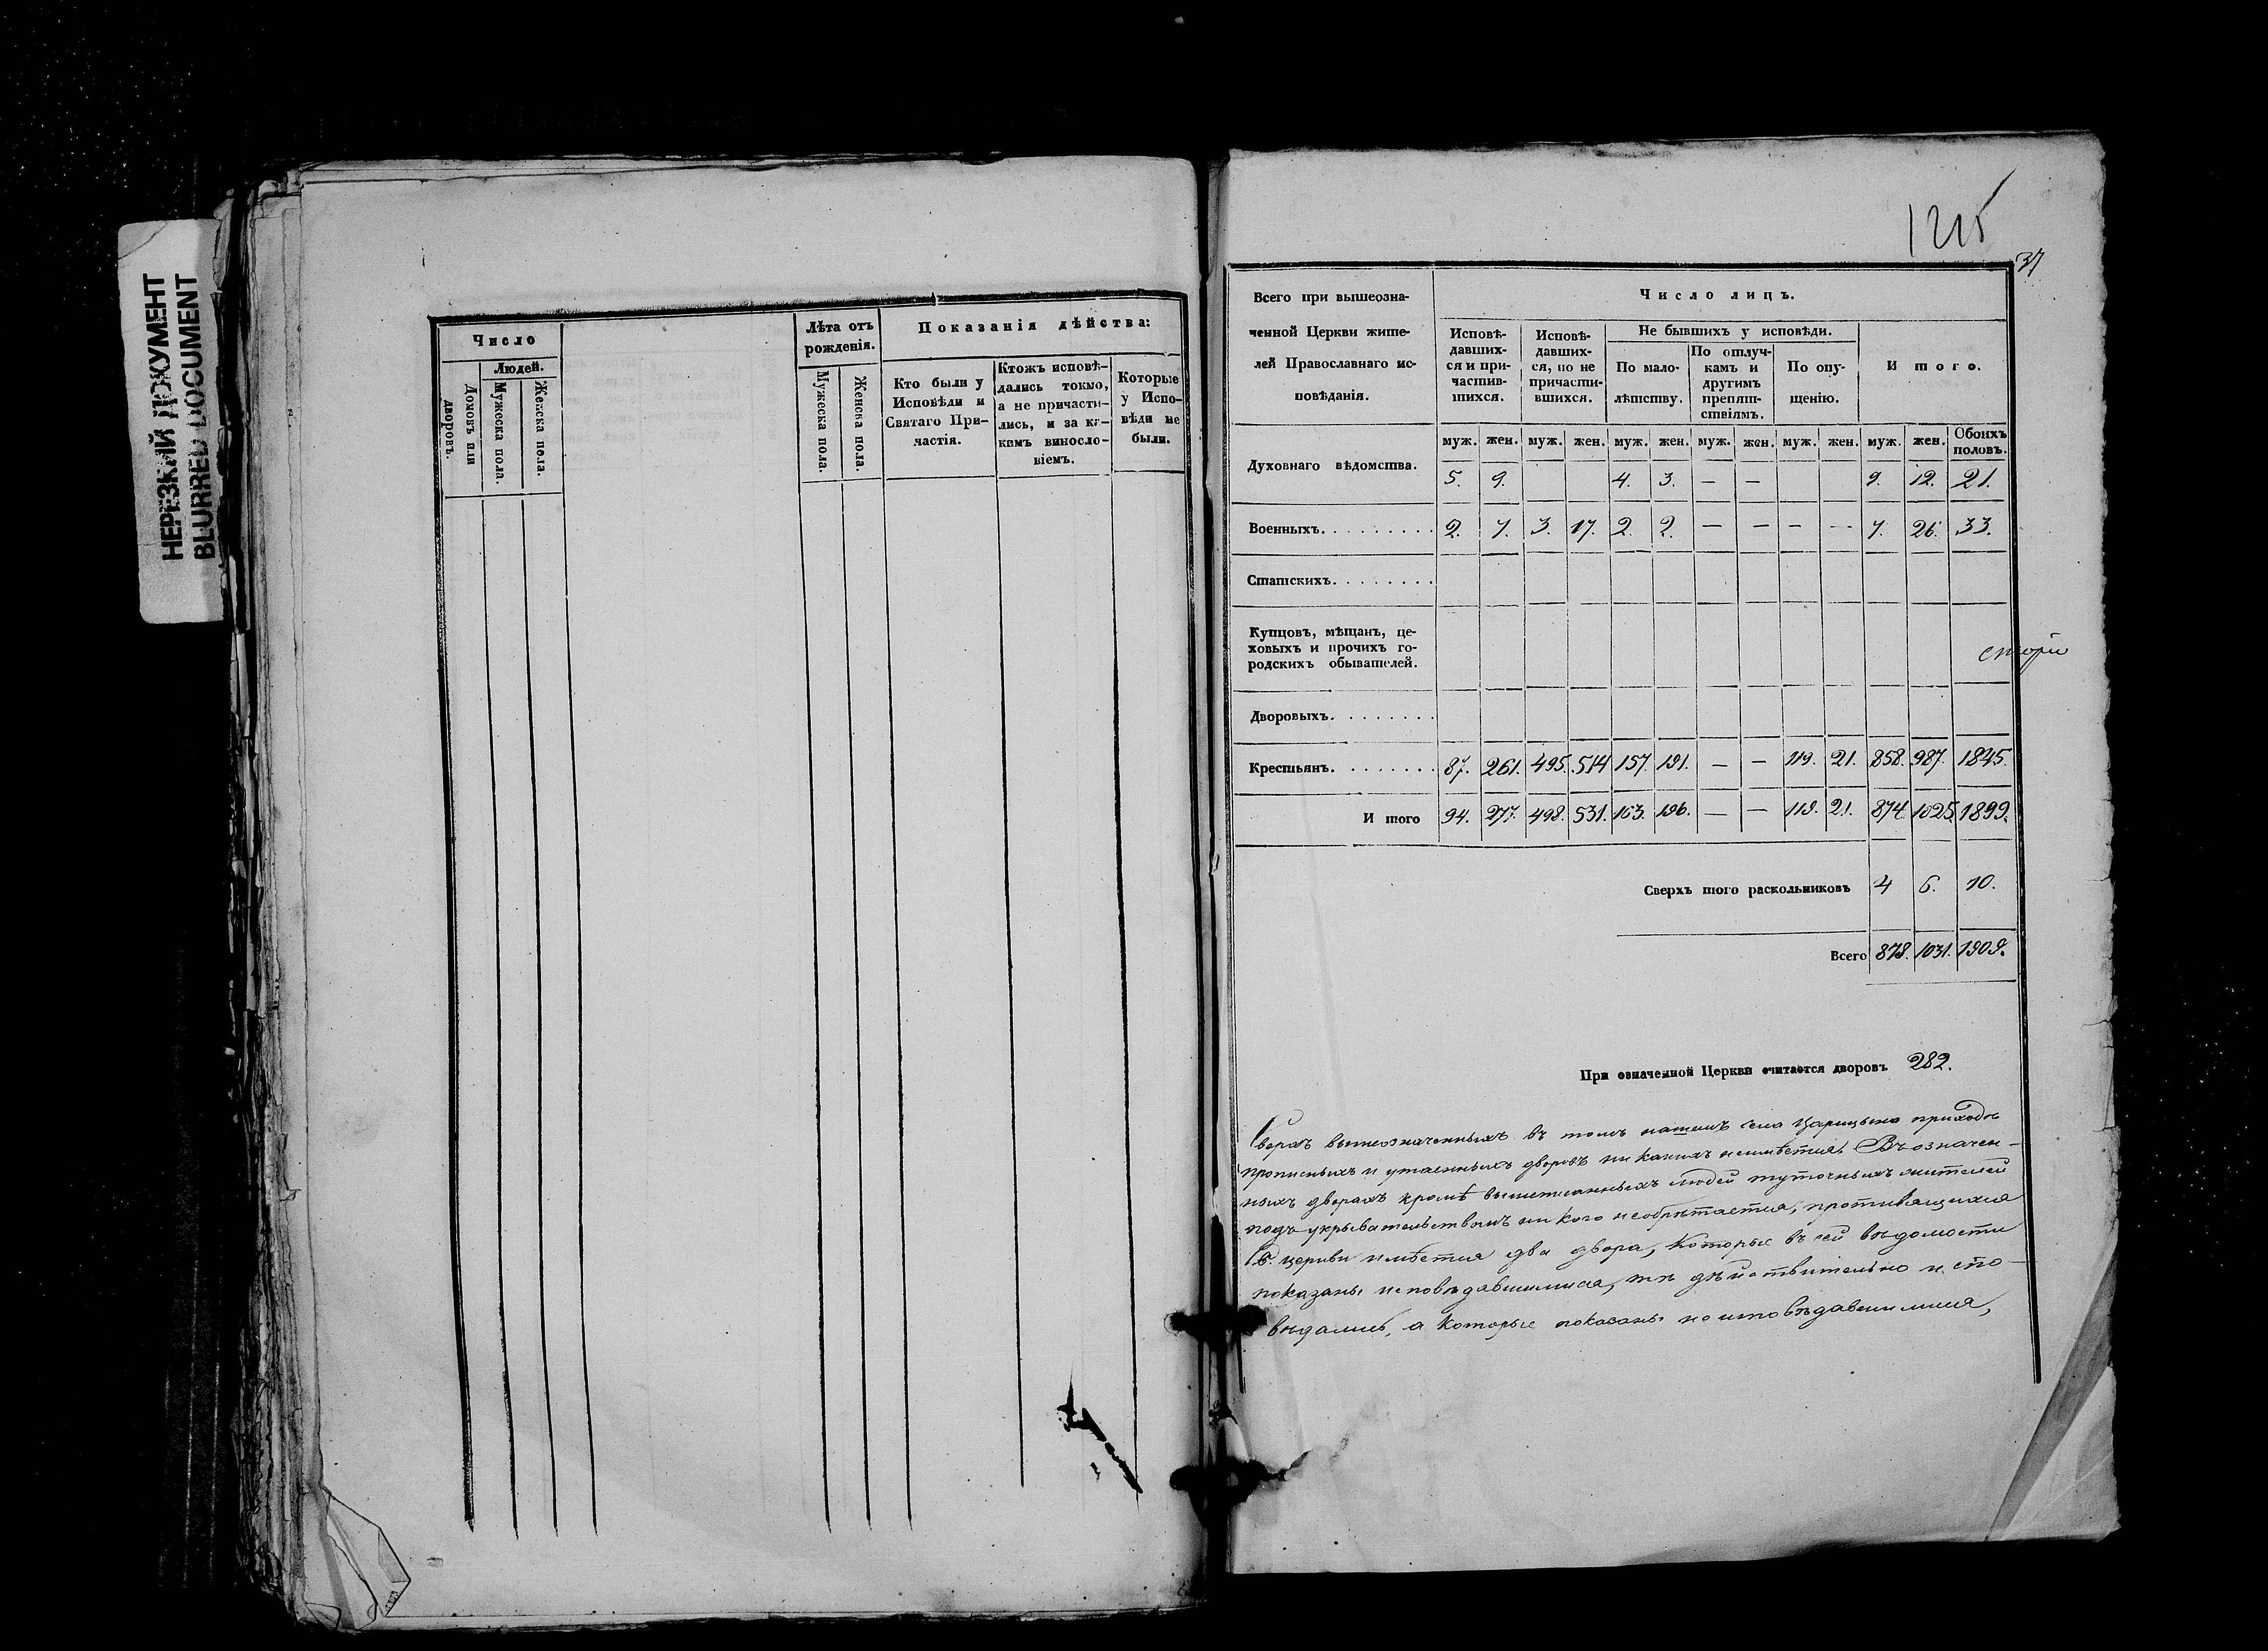 НЕРЕЗКИЙ ДОКУМЕНТ
BLURRED DOCUMENT
Число
Людей.
Домовъ или дворовъ.
Мужеска пола.
Женска пола.
Лѣта отъ рожденія.
Мужеска пола.
Женска пола.
Показанія дѣйства:
Кто были у
Исповѣди и
Святаго При-
частія.
Ктожъ исповѣ-
дались токмо,
а не причасти-
лись, и за ка-
кимъ винословіемъ.
Которые
у Испо-
вѣди не
были.
1215
37
Всего при вышеозна-
ченной Церкви жите-
лей Православнаго ис-
повѣданія.
Число лицъ.
Исповѣ-
давших-
ся и при-
частив-
шихся.
Исповѣ-
давших-
ся, но не
причасти-
вшихся.
Не бывшихъ у исповѣди.
По мало-
лѣтству.
По отлуч-
камъ и
другимъ
препят-
ствіямъ.
По опу-
щенію.
Итого.
муж. жен. муж. жен. муж. жен. муж. жен. муж. жен. муж. жен. Обоихъ половъ.
Духовнаго вѣдомства. 5. 9. 4. 3. — — 9. 12. 21.
Военныхъ. 2. 7. 3. 17. 2. 2. — — — — 7. 26. 33.
Статскихъ.
Купцовъ, мѣщанъ, це-
ховыхъ и прочихъ го-
родскихъ обывателей.
Дворовыхъ.
Крестьянъ. 87. 261. 495. 514 157. 191. — — 119. 21. 858. 987. 1845.
Итого 94. 277. 498. 531. 163. 196. — — 119. 21. 874. 1025. 1899.
Сверхъ того раскольниковъ 4 6. 10.
Всего 878. 1031. 1909.
При означенной Церкви считается дворовъ 282.
Сверхъ вышеозначенныхъ въ томъ нашемъ села Царицына приходѣ
прописныхъ и утаенныхъ дворовъ ни какихъ неимѣется. Въ означен-
ныхъ дворахъ кромѣ вышеписанныхъ людей туточныхъ жителей
подъ укрывательствомъ ни кого необрѣтается, противящихся
Св. церкви имѣется два двора, которые въ сей вѣдомости
показаны исповѣдавшимися, тѣ дѣйствительно испо-
вѣдались, а которые показаны не исповѣдавшимися,